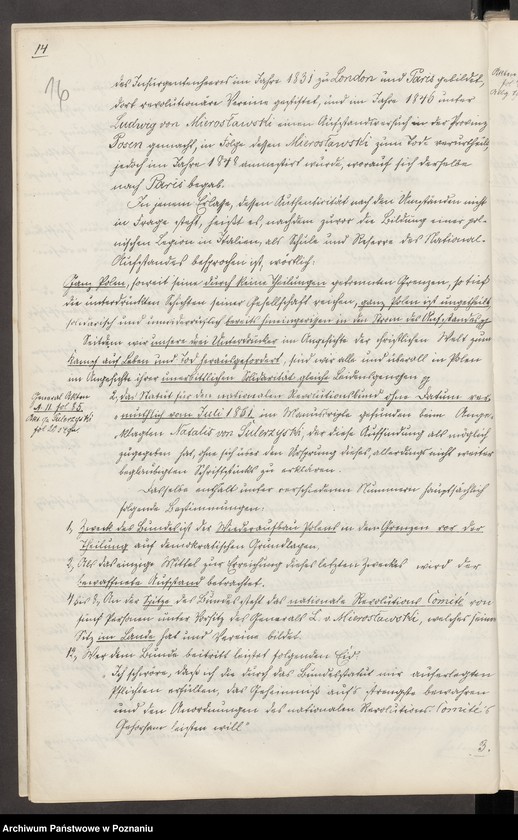 14
16
des Insurgentenheeres im Jahre 1831 zu London und Paris gebildet,
dort revolutionäre Vereine gestiftet, und im Jahre 1846 unter
Ludwig von Mierosławski einen Aufstandsversuch in der Provinz
Posen gemacht, in Folge dessen Mierosławski zum Tode verurtheilt,
jedoch im Jahre 1848 amnestirt wurde, worauf sich derselbe
nach Paris begab.
In jenem Erlasse, dessen Authenticität nach den Umständen nicht
in Frage steht, heißt es, nachdem zuvor die Bildung einer pol-
nischen Legion in Italien, als Schule und Reserve des National-
Aufstandes besprochen ist, wörtlich:
Ganz Polen, soweit seine durch keine Theilungen getrennten Grenzen, so tief
die unterdrückten Schichten seiner Gesellschaft reichen, ganz Polen ist ungetheilt
solidarisch und unwiderruflich bereits hineingerissen in den Strom des Aufstandes pp
Seitdem wir unsere drei Unterdrücker im Angesichte der christlichen Welt zum
Kampf auf Leben und Tod herausgefordert, sind wir alle und überall in Polen
im Angesichte ihrer unerbittlichen Solidarität gleiche Leidensgenossen pp
General Akten
A. II. fol 85.
Act. g. Sulerzyski
fol
2, das Statut für den nationalen Revolutionsbund ohne Datum ver-
muthlich vom Juli 1861 im Manuscripte gefunden beim Ange-
klagten Natalis von Sulerzyski, der diese Auffindung als möglich
zugegeben hat, ohne sich über den Ursprung dieses, allerdings nicht weiter
beglaubigten Schriftstücks zu erklären.
Dasselbe enthält unter verschiedenen Nummern hauptsächlich
folgende Bestimmungen:
1, Zweck des Bundes ist der Wiederaufbau Polens in den Grenzen vor der
Theilung auf demokratischen Grundlagen.
2, Als das einzige Mittel zur Erreichung dieses letzten Zweckes wird der
bewaffnete Aufstand betrachtet.
bis 8, An der Spitze des Bundes steht das nationale Revolutions Comité von
fünf Personen unter Vorsitz des Generals L. v Mierosławski, welcher seinen
Sitz im Lande hat und Vereine bildet.
12, Wer dem Bunde beitritt leistet folgenden Eid:
„Ich schwöre, daß ich die durch das Bundesstatut mir auferlegten
Pflichten erfüllen, das Geheimniß aufs strengste bewahren
und den Anordnungen des nationalen Revolutions-Comité's
Gehorsam leisten will“
3.
Archiwum Państwowe w Poznaniu